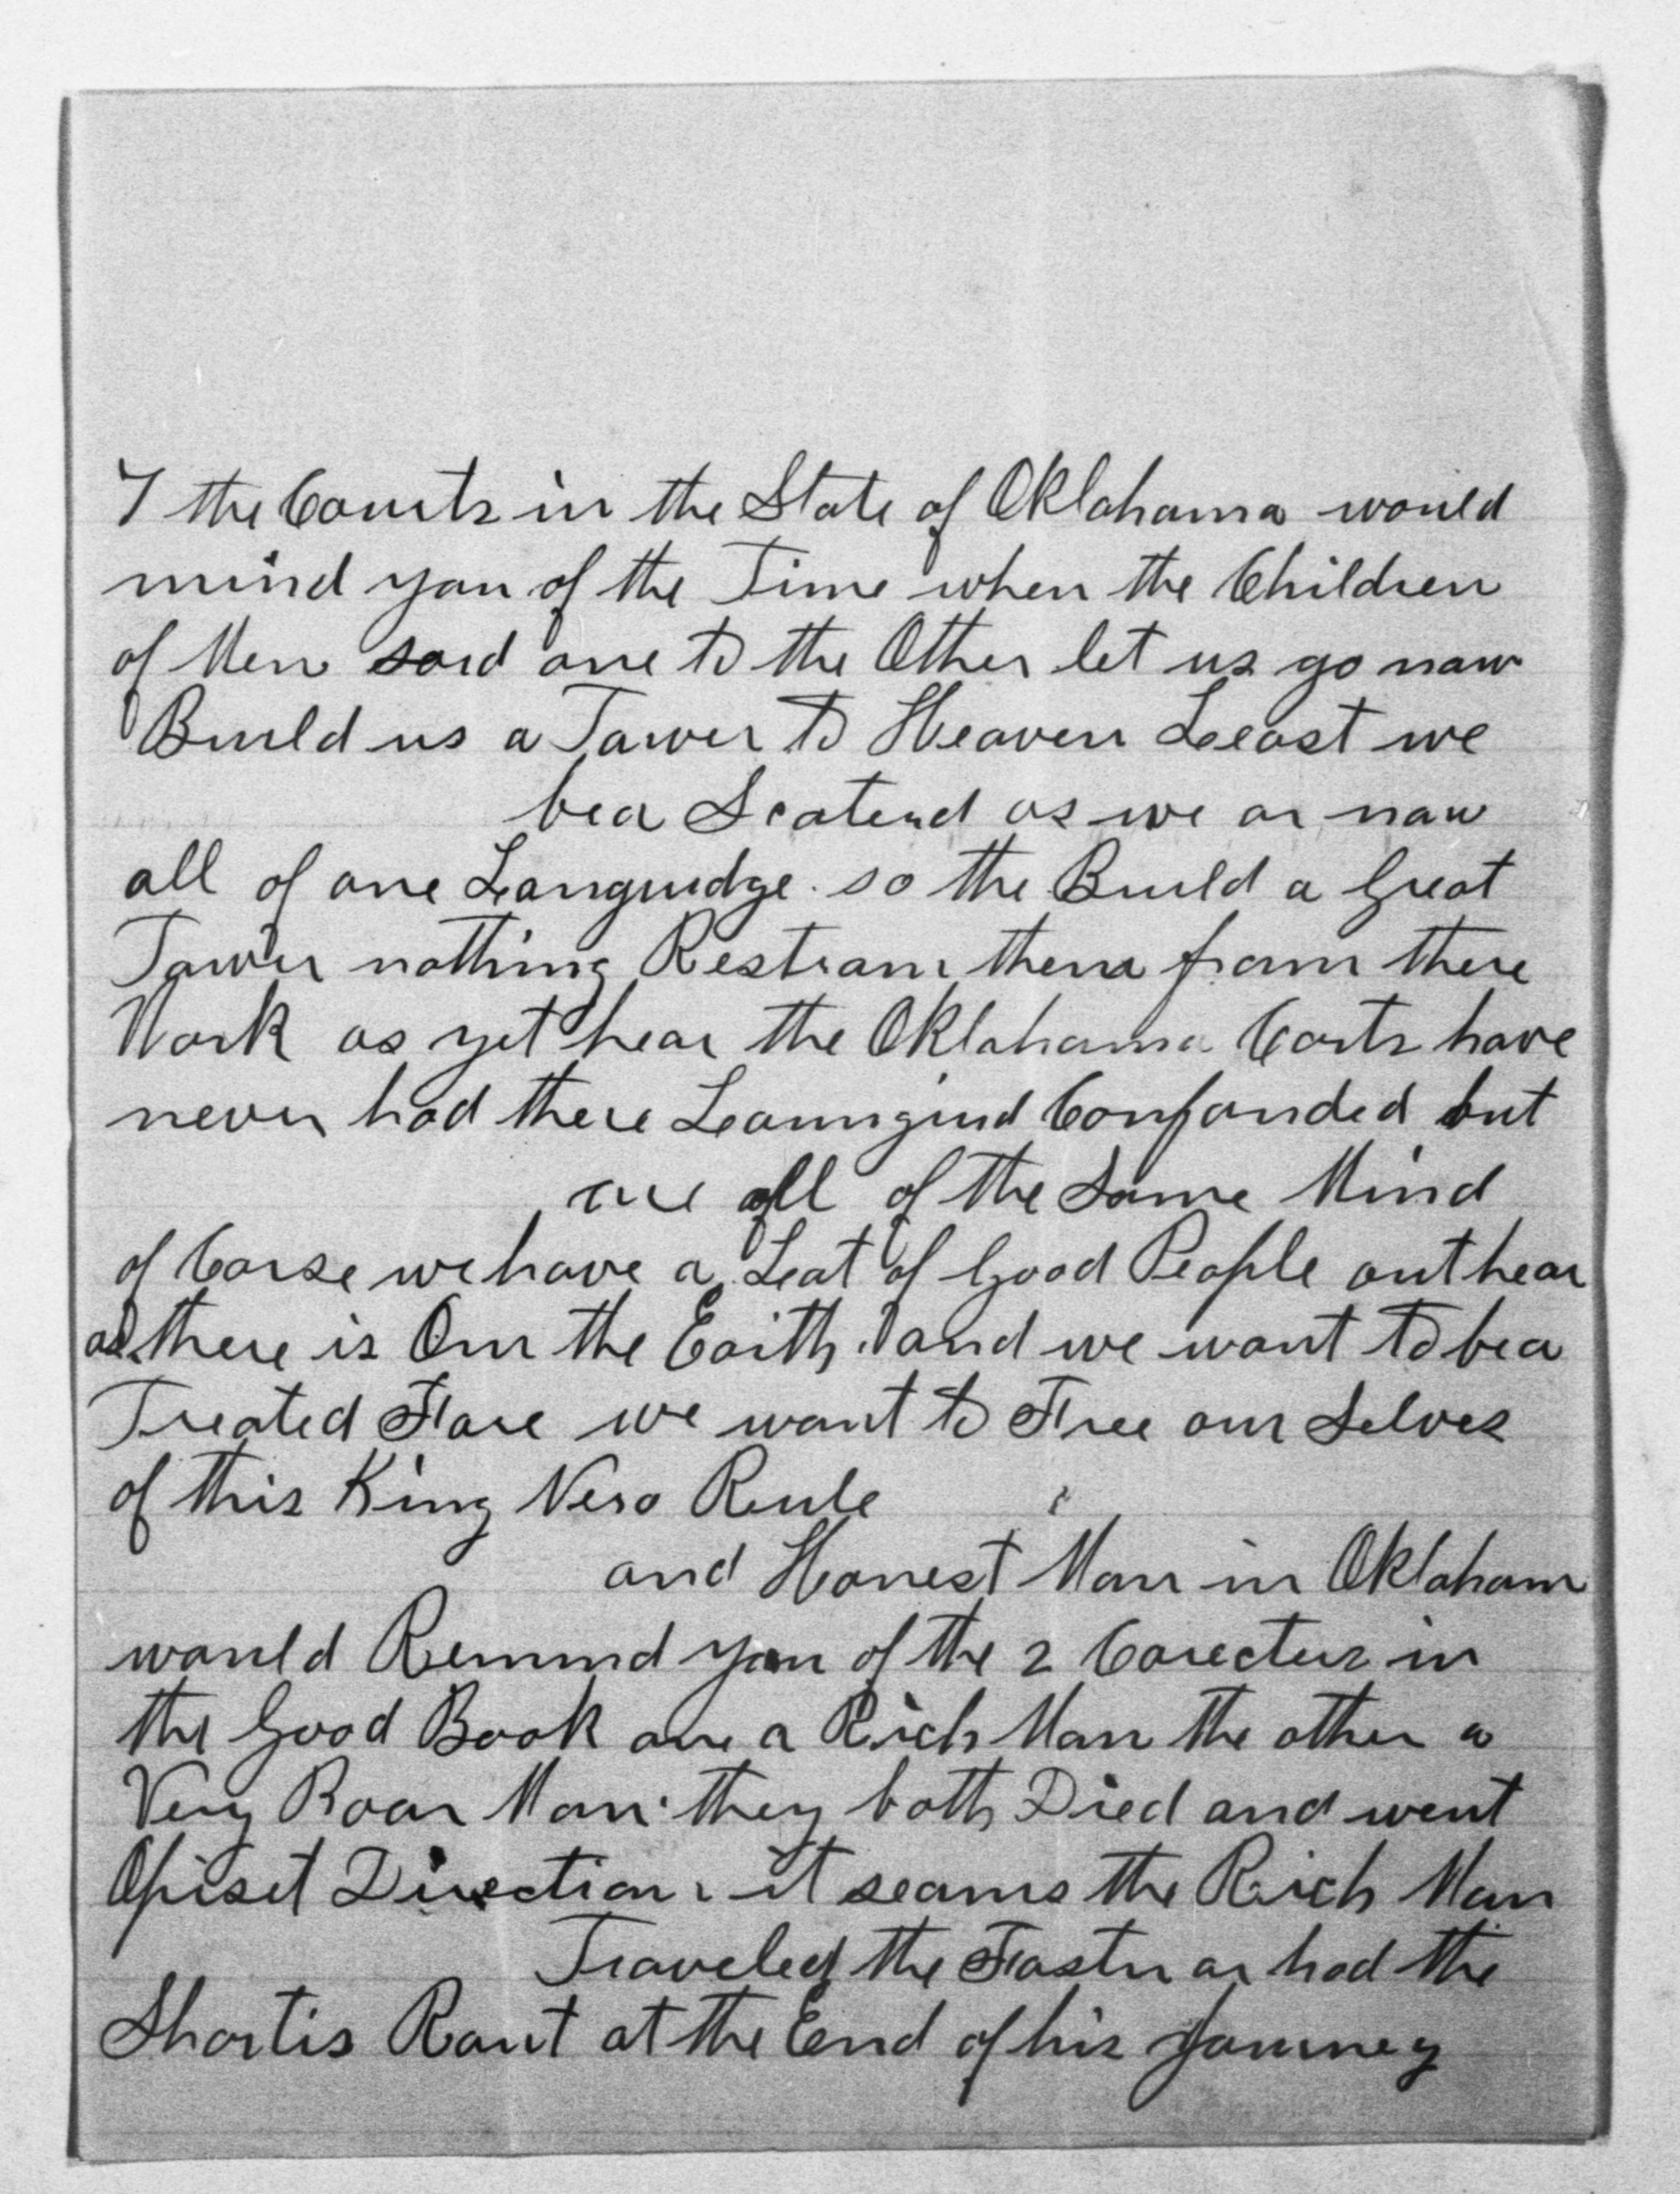 7 the Courts in the State of Oklahama would
mind you of the Time when the Children
of Men said one to the Other let us go now
Build us a Tower to Heaven Least we
bea Scaterd as we ar now
all of one Languidge. so the Build a Great
Tower nothing Restrain them from there
Work as yet hear the Oklahama Corts have
never had there Confonded but
are all of the Same Mind
of Corse we have a Leat of Good People out hear
as there is Onn the Earth. and we want to bea
Treated Fare we want to Free our Selves
of this King Nero Rule
and Honest Man in Oklaham
would Remind you of the 2 Carecters in
the Good Book one a Rich Man the other a
Very Poor Man. they both Died and went
Opiset Direction. it seams the Rich Man
Traveled the Faster or had the
Shortis Rout at the End of his Journey